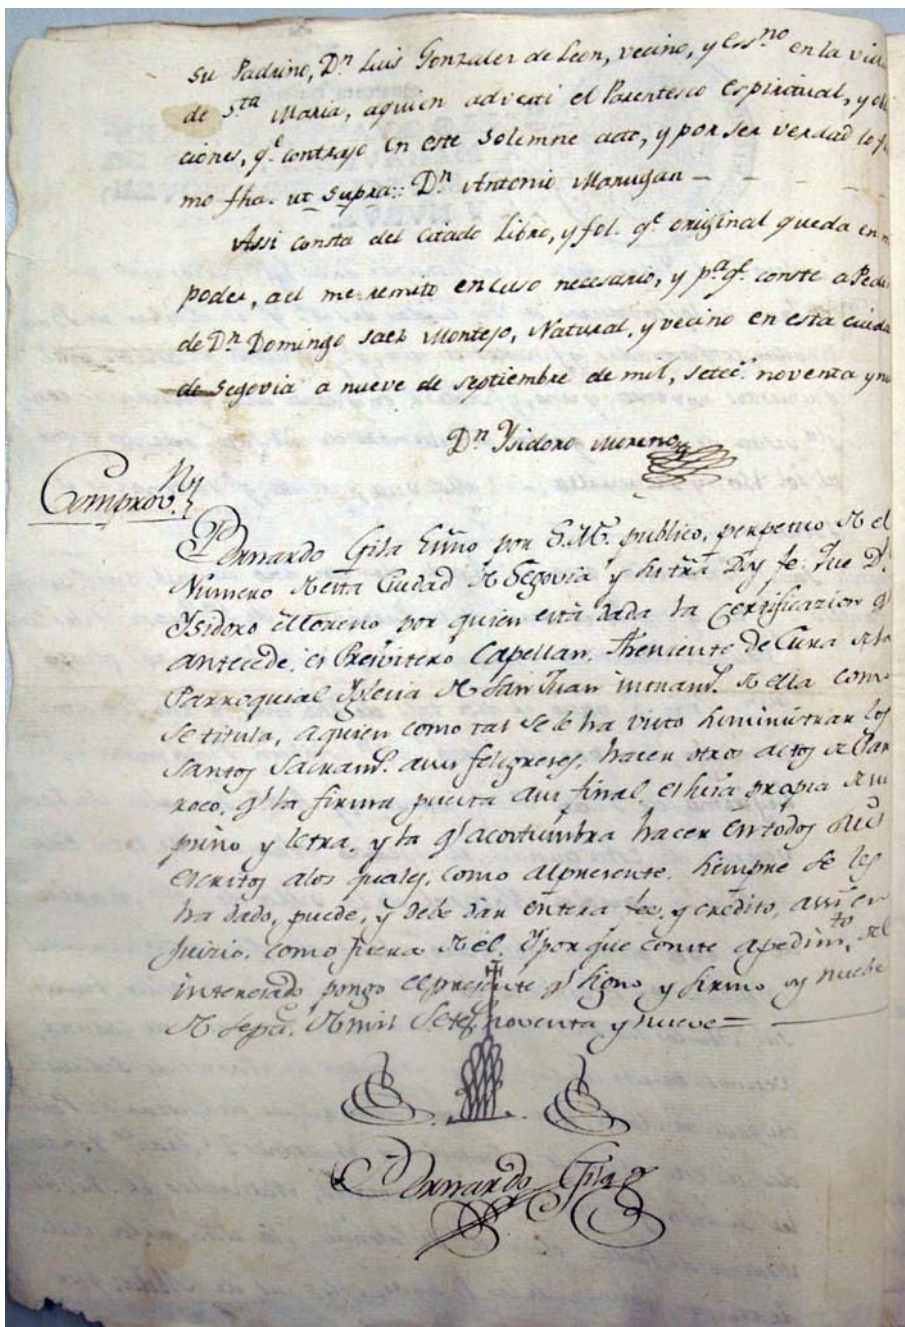 su Padrino, Dn Luis Gonzalez de Leon, vecino, y essno en la vi
de Sta Maria, aquien adverti el Parentesco Espiritual, y
ciones, qe contrajo en este solemne acto, y por ser verdad lo
mo fha. ut supra:: Dn Antonio Manugan - - - -
Assi consta del citado Libro, y fol. qe original queda en
poder, a el me remito en caso necesario, y pa qe conste a Pedi
de Dn Domingo Saez Montejo, Natural, y vecino en esta ciuda
de Segovia a nueve de septiembre de mil, setec. noventa y nu
Dn Isidoro Moreno
Comprovn
Bernardo Gila Essno por S.M. publico, perpetuo del
Numero de esta Ciudad de Segovia y su trra Doy fe: Que Dn
Isidoro Moreno por quien està dada la Certificazion qe
antecede, es Presvitero Capellan, Theniente de Cura de la
Parroquial Yglesia de San Juan de ella como
se titula, a quien como tal se le ha visto suministrar los
Santos Sacramtos. a sus feligreses, hacer otros actos de Par
roco, qe la firma puesta a su final, es suia propia de su
puño y letra, y la qe acostumbra hacer en todos sus
escritos a los quales, como al presente, siempre se les
ha dado, puede, y debe dàr entera fee, y crédito, assi en
Juizio, como fuera de èl. Y por que conste a pedimto. del
interesado pongo el presente qe signo y firmo oy nuebe
de sepre. de mil setecs. noventa y nueve =
Bernardo Gila